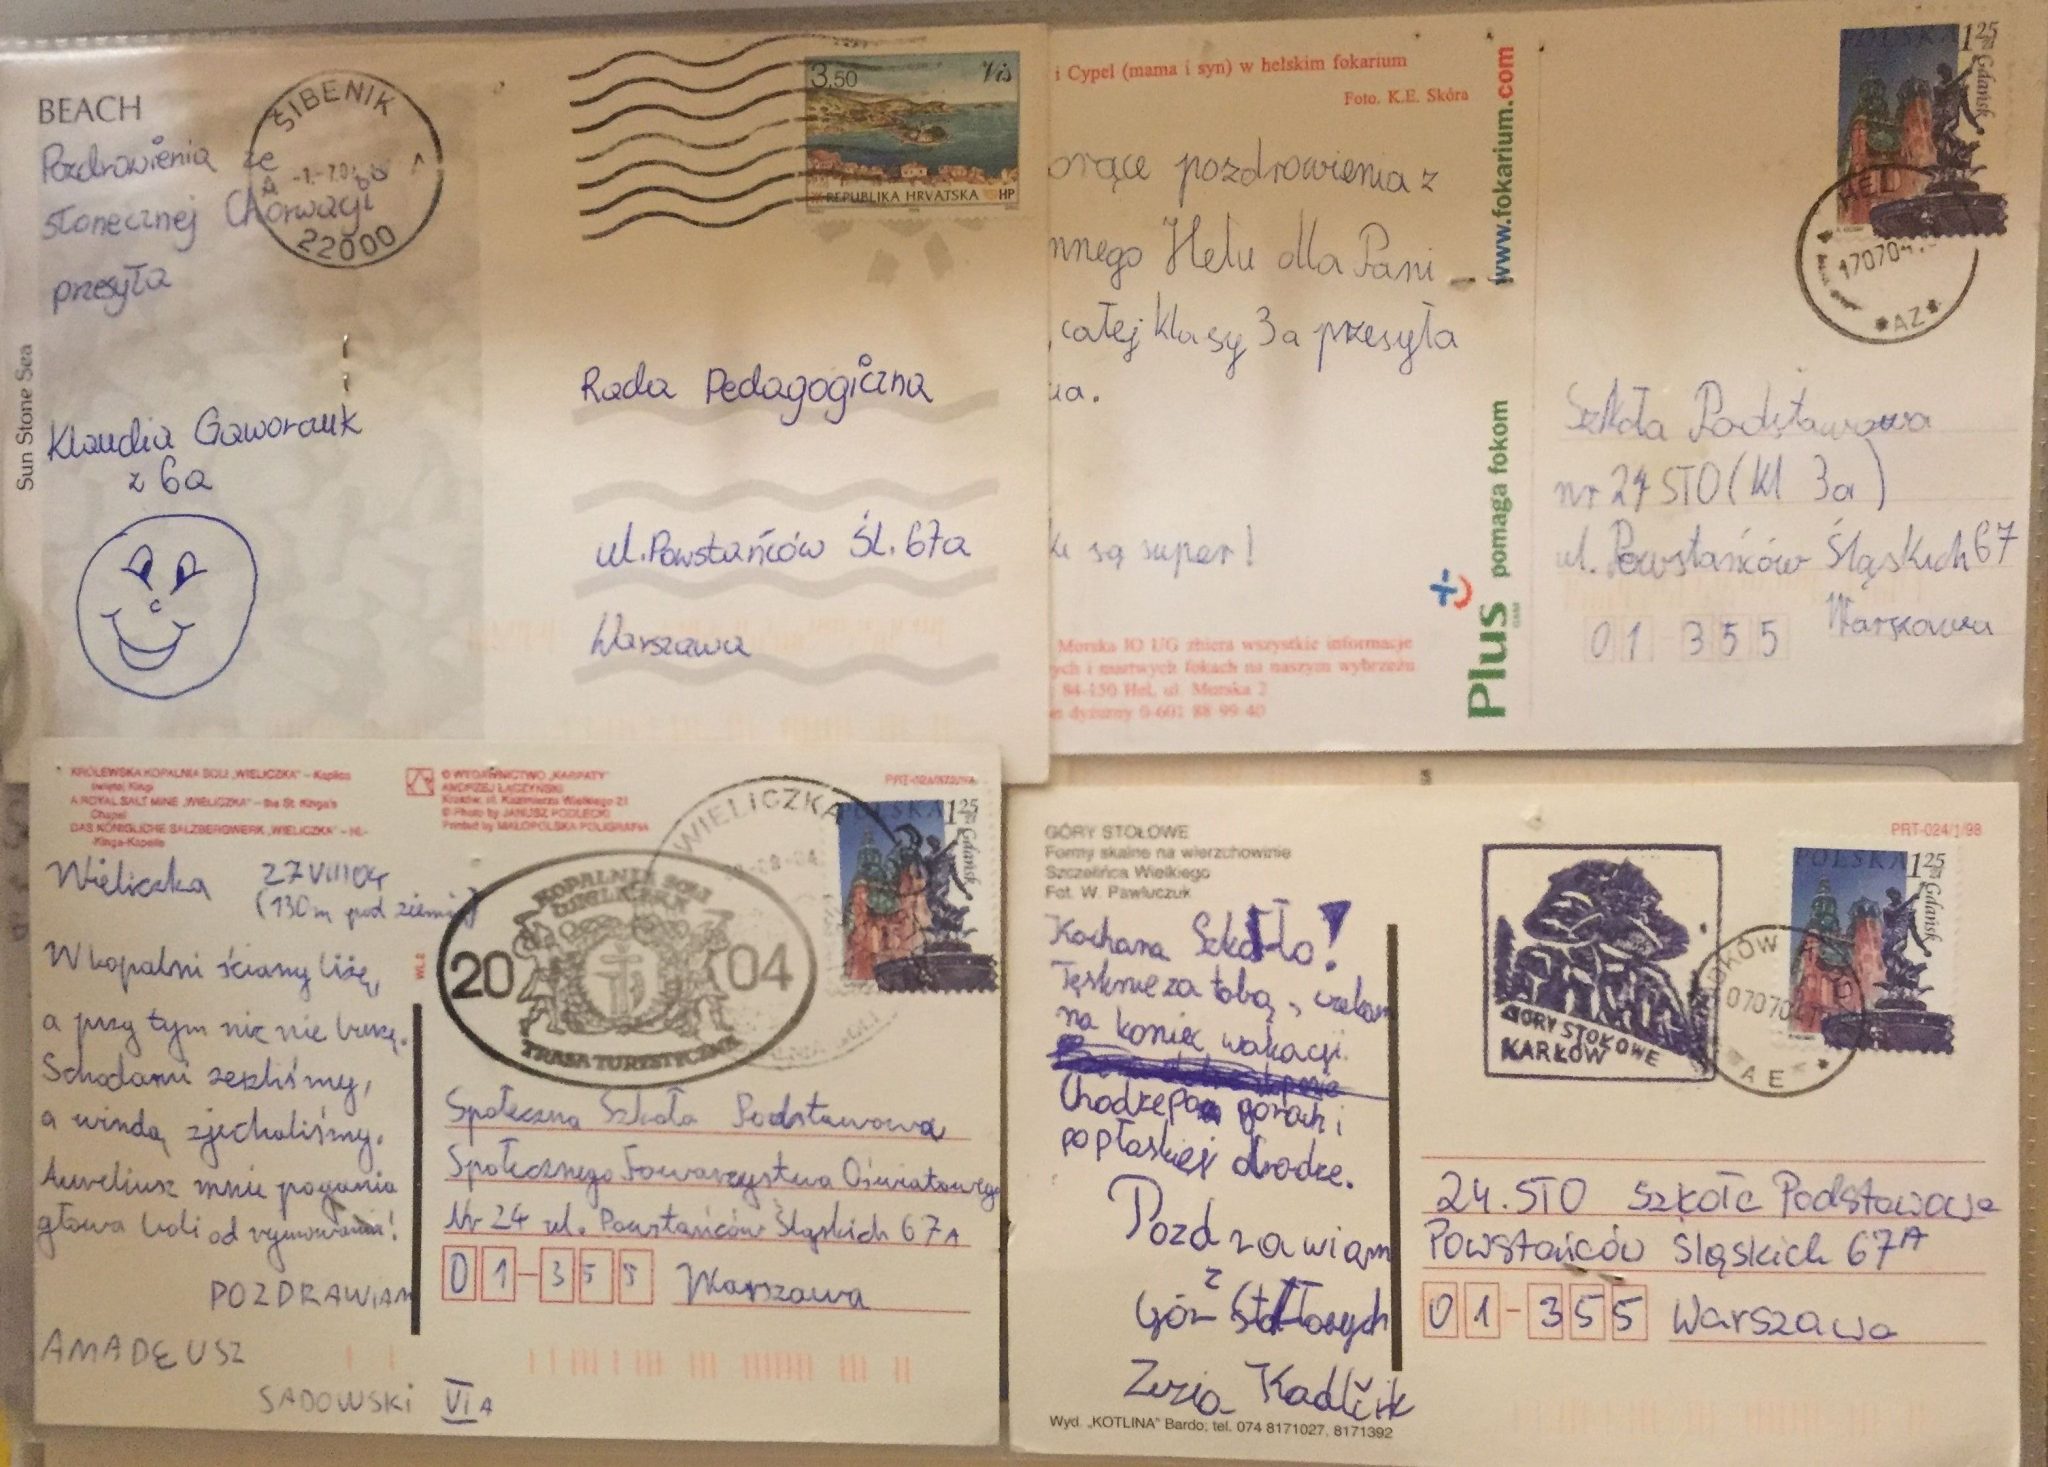 BEACH
Pozdrowienia ze
słonecznej Chorwacji
przesyła
Klaudia Gaworczuk
z 6a
Sun Stone Sea
ŠIBENIK
22000
3,50
Vis
REPUBLIKA HRVATSKA HP
Rada Pedagogiczna
ul. Powstańców Śl. 67a
Warszawa
i Cypel (mama i syn) w helskim fokarium
Foto. K.E. Skóra
orące pozdrowienia z
nnego Helu dla Pani
całej klasy 3a przesyła
ia.
są super!
Morska IO UG zbiera wszystkie informacje
ych i martwych fokach na naszym wybrzeżu
84-150 Hel, ul. Morska 2
dyżurny 0-601 88 99 40
www.fokarium.com
Plus pomaga fokom
POLSKA 1 25 zł
Gdańsk
HEL
170704
*AZ*
Szkoła Podstawowa
nr 24 STO (kl 3a)
ul. Powstańców Śląskich 67
01 355 Warszawa
KRÓLEWSKA KOPALNIA SOLI „WIELICZKA" – Kaplica
świętej Kingi
A ROYAL SALT MINE „WIELICZKA" – the St. Kinga's
Chapel
DAS KÖNIGLICHE SALZBERGWERK „WIELICZKA" – Hl.-
Kinga-Kapelle
© WYDAWNICTWO „KARPATY"
ANDRZEJ ŁĄCZYŃSKI
Kraków, ul. Kazimierza Wielkiego 21
© Photo by JANUSZ PODLECKI
Printed by MAŁOPOLSKA POLIGRAFIA
Wieliczka 27 VIII 04
(130m pod ziemią)
W kopalni ściany liżę,
a przy tym nic nie
Schodami zeszliśmy,
a windą zjechaliśmy.
Aureliusz mnie pogania
głowa boli od rymowania!
POZDRAWIAM
AMADEUSZ
SADOWSKI VI A
WL 2
WIELICZKA
KOPALNIA SOLI
WIELICZKA
20 04
TRASA TURYSTYCZNA
POLSKA 1 25 zł
Gdańsk
Społeczna Szkoła Podstawowa
Społecznego Towarzystwa Oświatowego
Nr 24 ul. Powstańców Śląskich 67A
01-355 Warszawa
GÓRY STOŁOWE
Formy skalne na wierzchowinie
Szczelińca Wielkiego
Fot. W. Pawluczuk
PRT-024/1/98
Kochana Szkoło!
Tęsknię za tobą, czekam
na koniec wakacji.
Chodzę po górach i
po płaskiej drodze.
Pozdrawiam
z
Gór Stołowych
Zuzia Kadlčik
Wyd. „KOTLINA" Bardo; tel. 074 8171027, 8171392
GÓRY STOŁOWE
KARŁÓW
070704
AE *
POLSKA 1 25 zł
Gdańsk
24. STO Szkoła Podstawowa
Powstańców Śląskich 67A
01-355 Warszawa